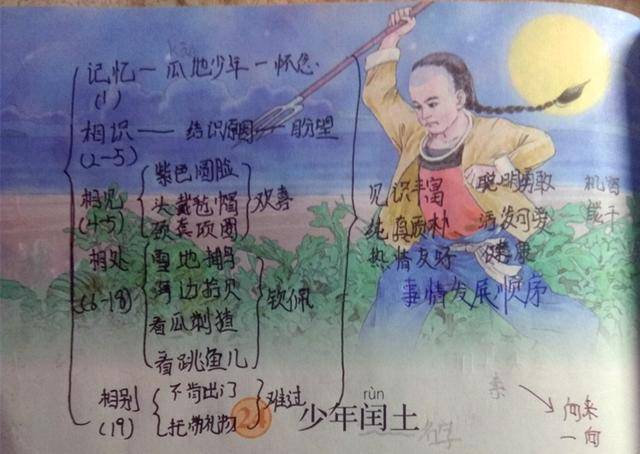 记忆一瓜地少年一怀念
(1)
相识——结识原因——盼望
(2-5)
紫色圆脸
相见 头戴毡帽 欢喜
(4-5) 颈套项圈
见识丰富 聪明勇敢 机智
纯真质朴 活泼可爱 能干
热情友好 健康
相处 雪地捕鸟
(6-18) 海边拾贝 钦佩
看瓜刺猹
事情发展顺序
看跳鱼儿
相别 不肯出门 难过
(19) 托带礼物
24 rùn
少年闰土
一向